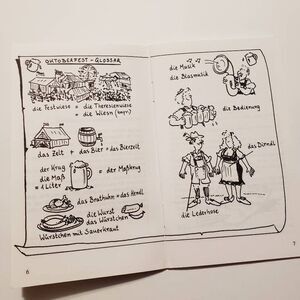 OKTOBERFEST - GLOSSAR
die Festwiese = die Theresienwiese
= die Wiesn (bayr.)
das Zelt + das Bier = das Bierzelt
der Krug
die Maß = der Maßkrug
= 1 Liter
das Brathuhn = das Hendl
die Wurst
das Würstchen
Würstchen mit Sauerkraut
6
die Musik
die Blasmusik
die Bedienung
das Dirndl
die Lederhose
7